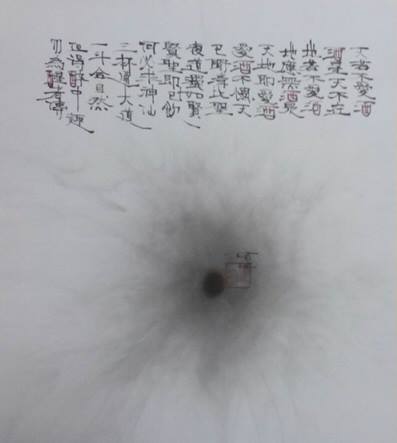 天若不愛酒
酒星天不在
地若不愛酒
地應無酒泉
天地即愛酒
愛酒不愧天
已聞清比聖
復道濁如賢
賢聖即已飲
何必求神仙
三杯通大道
一斗合自然
但得醉中趣
勿為醒者傳